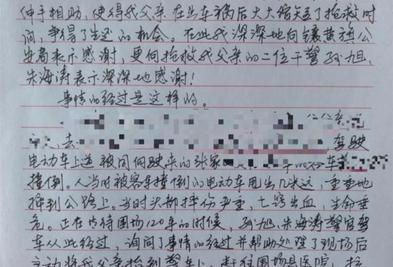 伸手相助，使得我父亲在出车祸后大大缩短了抢救时
间，争得了生还的机会。在此我深深地向镶黄旗公
安者表示感谢，更向抢救我父亲的二位干警孙旭，
朱海涛表示深深地感谢！
事情的经过是这样的。
去 驾驶
电动车上送 被同向驶来的张家
撞倒。人当时被客车撞倒的电动车甩出几米远，重重地
摔到公路上，当时头部摔伤严重，七窍出血，生命垂
危。正在等待围场120车的时候，孙旭、朱海涛警官驾
车从此经过，询问了事情的经过并帮助处理了现场后
主动将我父亲抬到警车上，赶往围场县医院，抢